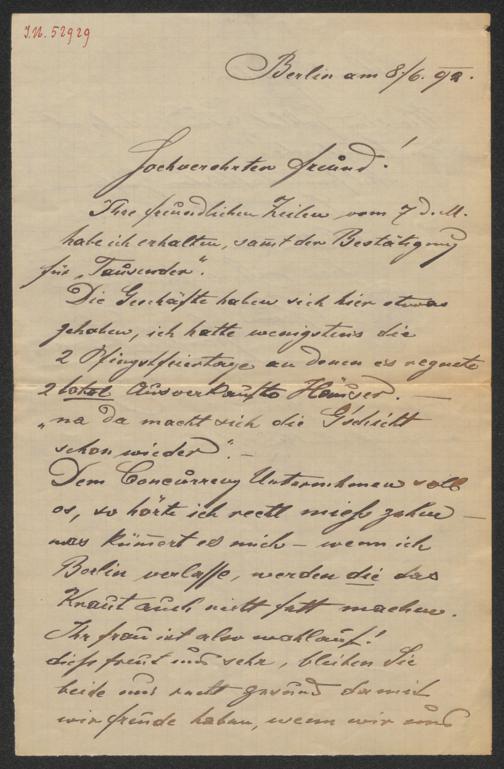 J.N. 52929
Berlin am 8/6. 92.
Hochverehrter Freund!
Ihre freundlichen Zeilen vom 7 d. M.
habe ich erhalten, sam̄t der Bestätigung
für „Tausender".
Die Geschäfte haben sich hier etwas
gehoben, ich hatte wenigstens die
2 Pfingstfeiertage an denen es regnete
2 total Ausverkaufte Häuser. —
„na da macht sich die G'schicht
schon wieder". —
Dem Concurrenz Unternehmen soll
es, so hörte ich recht mieß gehen —
was küm̄ert es mich — wenn ich
Berlin verlasse, werden die das
Kraut auch nicht fett machen.
Ihr Frau ist also wohlauf!
dieß freut uns sehr, bleiben Sie
beide uns recht gesund damit
wir freude haben, wenn wir uns